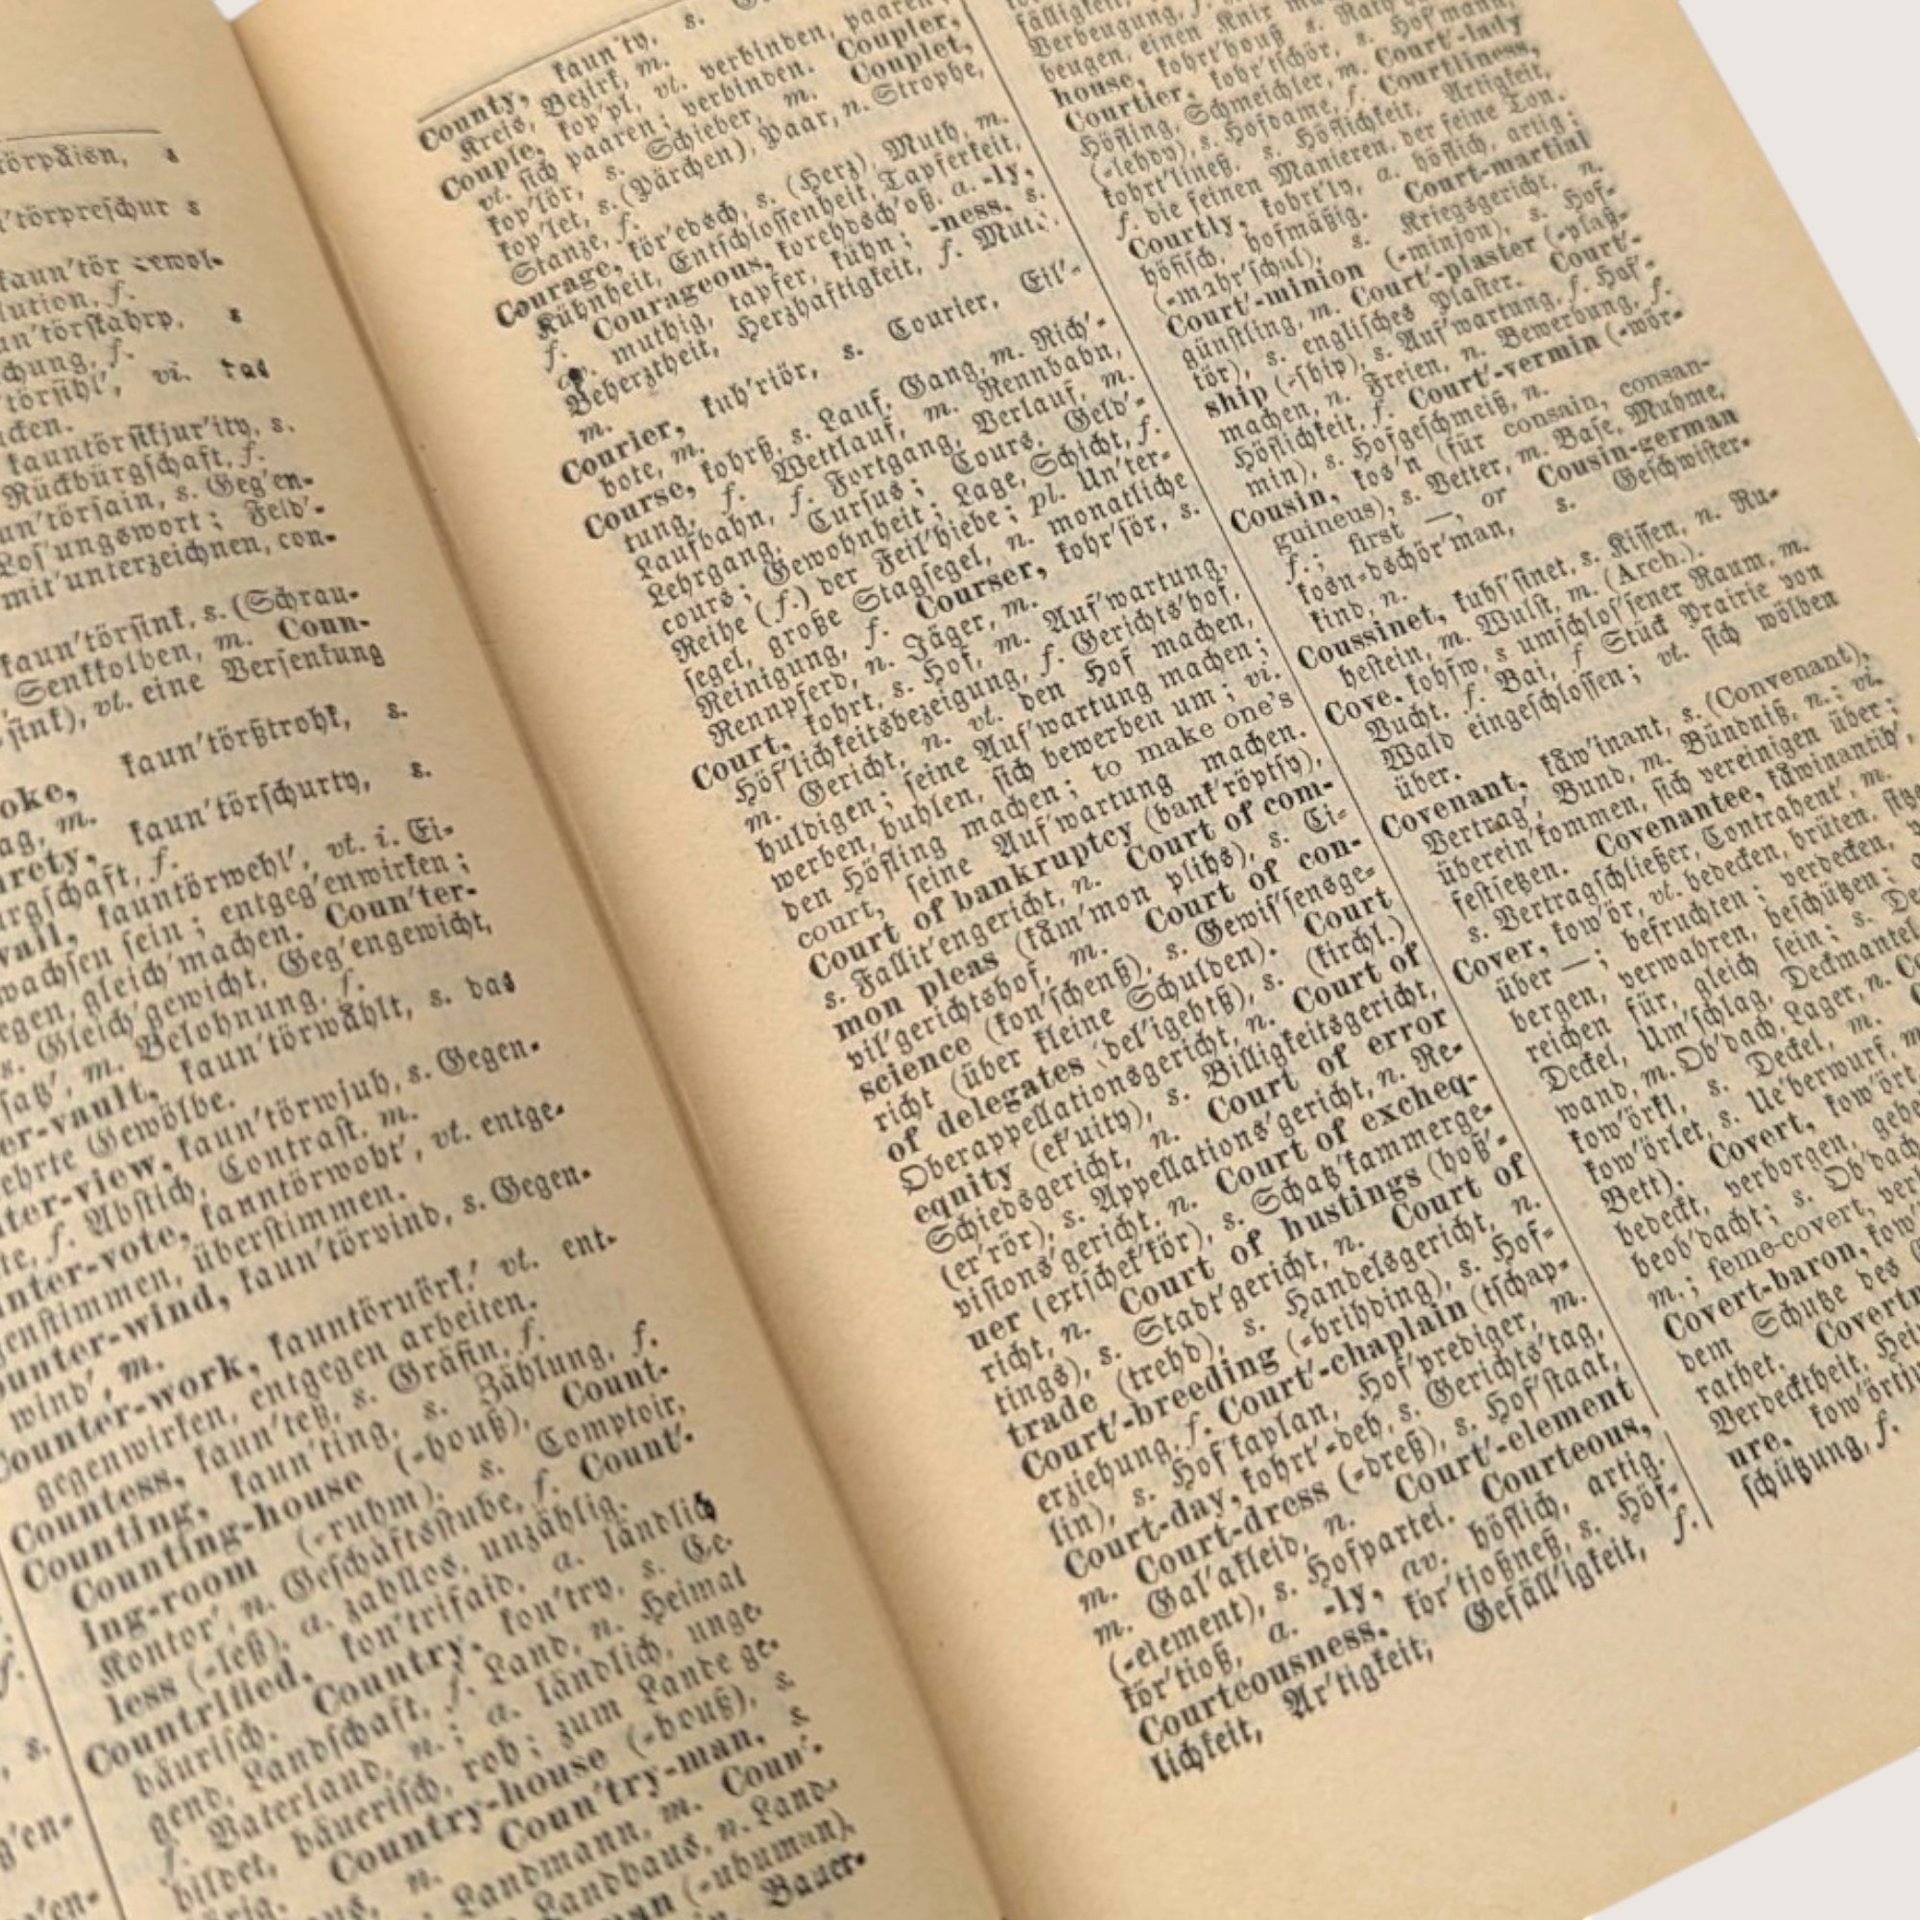 törpäisn, s
'törpreschur s
kaun'tör rewol-
lution, f.
un'törskahrp, s
chung, f.
törsihl', vi. das
cken.
kauntörsikjur'ity, s.
Rückbürgschaft, f.
un'törsain, s. Geg'en-
Los'ungswort; Feld'-
mit'unterzeichnen, con-
kaun'törsink, s. (Schrau-
Senkkolben, m. Coun-
sink), vt. eine Versenkung
oke, kaun'törßtrohk, s.
ag, m.
urety, kaun'törschurty, s.
urgschaft, f.
vail, kauntörwehl', vt. i. Ei-
wachsen sein; entgeg'enwirken;
egen, gleich'machen. Coun'ter-
s. Gleich'gewicht, Geg'engewicht,
saß', m. Belohnung, f.
er-vault, kaun'törwählt, s. das
ehrte Gewölbe.
ter-view, kaun'törwjuh, s. Gegen-
te, f. Abstich, Contrast, m.
nter-vote, kauntörwoht', vt. entge-
genstimmen, überstimmen.
ounter-wind, kaun'törvind, s. Gegen-
wind', m.
Counter-work, kauntöruörk' vt. ent-
gegenwirken, entgegen arbeiten.
Countess, kaun'teß, s. Gräfin, f.
Counting, kaun'ting, s. Zählung, f.
Counting-house (-houß), Count-
ing-room (-ruhm), s. Comptoir,
Kontor', n. Geschäftsstube, f. Count'-
less (-leß), a. zahllos, unzählig.
Countrified, kon'trifaid, a. ländlich
bäurisch. Country, kon'try, s. Ge-
gend, Landschaft, f. Land, n. Heimat
f. Vaterland, n.; a. ländlich, unge-
bildet, bäuerisch, roh; zum Lande ge-
hörig. Country-house (-houß), s.
haus, n. Coun'try-man, s.
Landmann, m. Coun'-
Landhaus, n. Land-
man (-uhuman),
Bauer-
County, kaun'ty, s.
Kreis, Bezirk, m.
Couple, kop'pl, vt. verbinden, paaren
vt. sich paaren; verbinden. Coupler,
kop'lör, s. Schieber, m. Couplet,
kop'let, s. (Pärchen), Paar, n. Strophe,
Stanze, f.
Courage, kör'edsch, s. (Herz), Muth, m.
Kühnheit, Entschlossenheit, Tapferkeit,
f. Courageous, korehdsch'oß, a. -ly,
av. muthig, tapfer, kühn; -ness, s.
Beherztheit, Herzhaftigkeit, f. Mut.
m.
Courier, kuh'riör, s. Courier, Eil'-
bote, m.
Course, kohrß, s. Lauf, Gang, m. Rich'-
tung, f. Wettlauf, m. Rennbahn,
Laufbahn, f. Fortgang, Verlauf, m.
Lehrgang, Cursus; Cours, Geld'-
cours; Gewohnheit; Lage, Schicht, f.
Reihe (f.) der Feil'hiebe; pl. Un'ter-
segel, große Stagsegel, n. monatliche
Reinigung, f. Courser, kohr'sör, s.
Rennpferd, n. Jäger, m.
Court, kohrt, s. Hof, m. Auf'wartung,
Höf'lichkeitsbezeigung, f. Gerichts'hof,
m. Gericht, n. vt. den Hof machen,
huldigen; seine Auf'wartung machen;
werben, buhlen, sich bewerben um; vi.
den Höfling machen; to make one's
court, seine Auf'wartung machen.
Court of bankruptcy (bank'röptsy),
s. Fallit'engericht, n. Court of com-
mon pleas (käm'mon plihs), s. Ci-
vil'gerichtshof, m. Court of con-
science (kon'schenß), s. Gewis'sensge-
richt (über kleine Schulden). Court
of delegates (del'igehtß), s. (kirchl.)
Oberappellationsgericht, n. Court of
equity (ek'uity), s. Billigkeitsgericht,
Schiedsgericht, n. Court of error
(er'rör), s. Appellations'gericht, n. Re-
visions'gericht, n. Court of excheq-
uer (extschek'kör), s. Schatz'kammerge-
richt, n. Court of hustings (hoß'-
tings), s. Stadt'gericht, n. Court of
trade (trehd), s. Handelsgericht, n.
Court'-breeding (-brihding), s. Hof-
erziehung, f. Court'-chaplain (tschap-
lin), s. Hof'kaplan, Hof'prediger, m.
Court-day, kohrt'-deh, s. Gerichts'tag,
m. Court-dress (-dreß), s. Hof'staat,
m. Gal'akleid, n. Court'-element
(-element), s. Hofpartei. Courteous,
kör'tioß, a. -ly, av. höflich, artig.
Courteousness, kör'tioßneß, s. Höf-
lichkeit, Ar'tigkeit; Gefäll'igkeit, f.
fälligkeit,
Verbeugung, f.
beugen, einen Knix m
house, kohrt'houß s. Rath
Courtier, kohr'tschör, s. Hof'mann,
Höfling, Schmeichler, m. Court'-lady
(-lehdy), s. Hofdame, f. Courtliness,
kohrt'lineß, s. Höflichkeit, Artigkeit,
f. die feinen Manieren, der feine Ton.
Courtly, kohrt'ly, a. höflich, artig;
höfisch, hofmäßig. Court-martial
(-mahr'schal), s. Kriegsgericht, n.
Court'-minion (-minjon), s. Hof-
günstling, m. Court'-plaster (-plaß-
tör), s. englisches Pflaster. Court'-
ship (-ship), s. Auf'wartung, f. Hof'-
machen, n. Freien, n. Bewerbung, f.
Höflichkeit, f. Court'-vermin (-wör-
min), s. Hofgeschmeiß, n.
Cousin, kos'n (für consain, consan-
guineus), s. Vetter, m. Base, Muhme,
f.; first —, or Cousin-german
kosn-dschör'man, s. Geschwister-
kind, n.
Coussinet, kuhs'sinet, s. Kissen, n. Ru-
hestein, m. Wulst, m. (Arch.).
Cove, kohfw, s umschlos'sener Raum, m.
Bucht, f. Bai, f Stück Prairie von
Wald eingeschlossen; vt. sich wölben
über.
Covenant, käw'inant, s. (Convenant),
Vertrag', Bund, m. Bündniß, n.; vi.
überein'kommen, sich vereinigen über;
festsetzen. Covenantee, käwinantih',
s. Vertragschließer, Contrahent', m.
Cover, kow'ör, vt. bedecken, brüten,
über —; befruchten; verdecken,
bergen, verwahren, beschützen;
reichen für, gleich sein; s. De
Deckel, Um'schlag, Deckmantel
wand, m. Ob'dach, Lager, n. Co
kow'örkl, s. Deckel, m.
kow'örlet, s. Ue'berwurf, m
Bett). Covert, kow'ört,
bedeckt, verborgen, gehei
beob'dacht; s. Ob'dach
m.; feme-covert, verh
Covert-baron, kow'
dem Schutze des
rathet. Covertn
Verdecktheit, Hei
ure, kow'örtju
schützung, f.